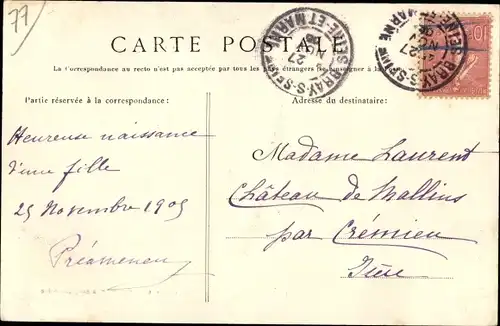 77
CARTE POSTALE
La Correspondance au recto n'est pas acceptée par tous les pays étrangers
Partie réservée à la correspondance:
Adresse du destinataire:
BRAY-S-SEINE
SEINE-ET-MARNE
27
BRAY-S-SEINE
27
10
Heureuse naissance
d'une fille
25 Novembre 1905
Préameneu
Madame Laurent
Château de Mallins
par Crémieu
Isère